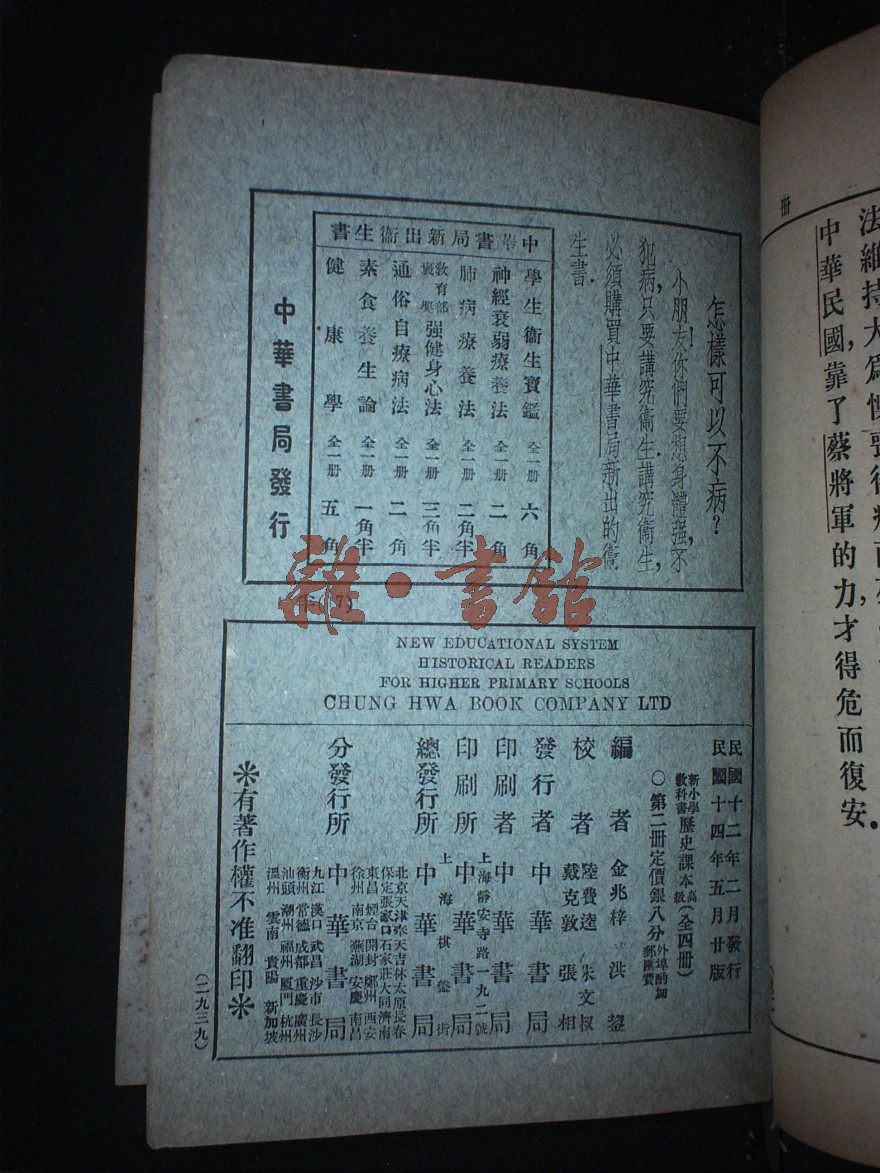 怎樣可以不病？
小朋友！你們要想身體强，不
犯病，只要講究衞生。講究衞生，
必須購買中華書局新出的衞
生書。
中華書局新出衞生書
學生衞生寶鑑 全一册 六角
神經衰弱療養法 全一册 二角
肺病療養法 全一册 二角半
教育部褒獎 强健身心法 全一册 三角半
通俗自療病法 全一册 二角
素食養生論 全一册 一角半
健康學 全一册 五角
中華書局發行
雜·書館
NEW EDUCATIONAL SYSTEM
HISTORICAL READERS
FOR HIGHER PRIMARY SCHOOLS
CHUNG HWA BOOK COMPANY LTD
民國十二年二月發行
民國十四年五月廿版
新小學教科書 歷史課本 高級 （全四册）
○第二册定價銀八分 外埠酌加郵匯費
編者 金兆梓 洪鋆
校者 陸費逵 朱文叔
戴克敦 張相
發行者 中華書局
印刷者 中華書局
印刷所 上海靜安寺路一九二號 中華書局
總發行所 上海棋盤街 中華書局
分發行所 中華書局
北京天津奉天吉林太原長春
保定張家口石家莊大同濟南
東昌煙台開封鄭州西安
徐州南京蕪湖安慶南昌
九江漢口武昌沙市長沙
衡州常德成都重慶廣州
汕頭潮州福州厦門杭州
溫州雲南貴陽新加坡
※有著作權不准翻印※
（二九三九）
册
法維持大爲
中華民國，靠了蔡將軍的力，才得危而復安。